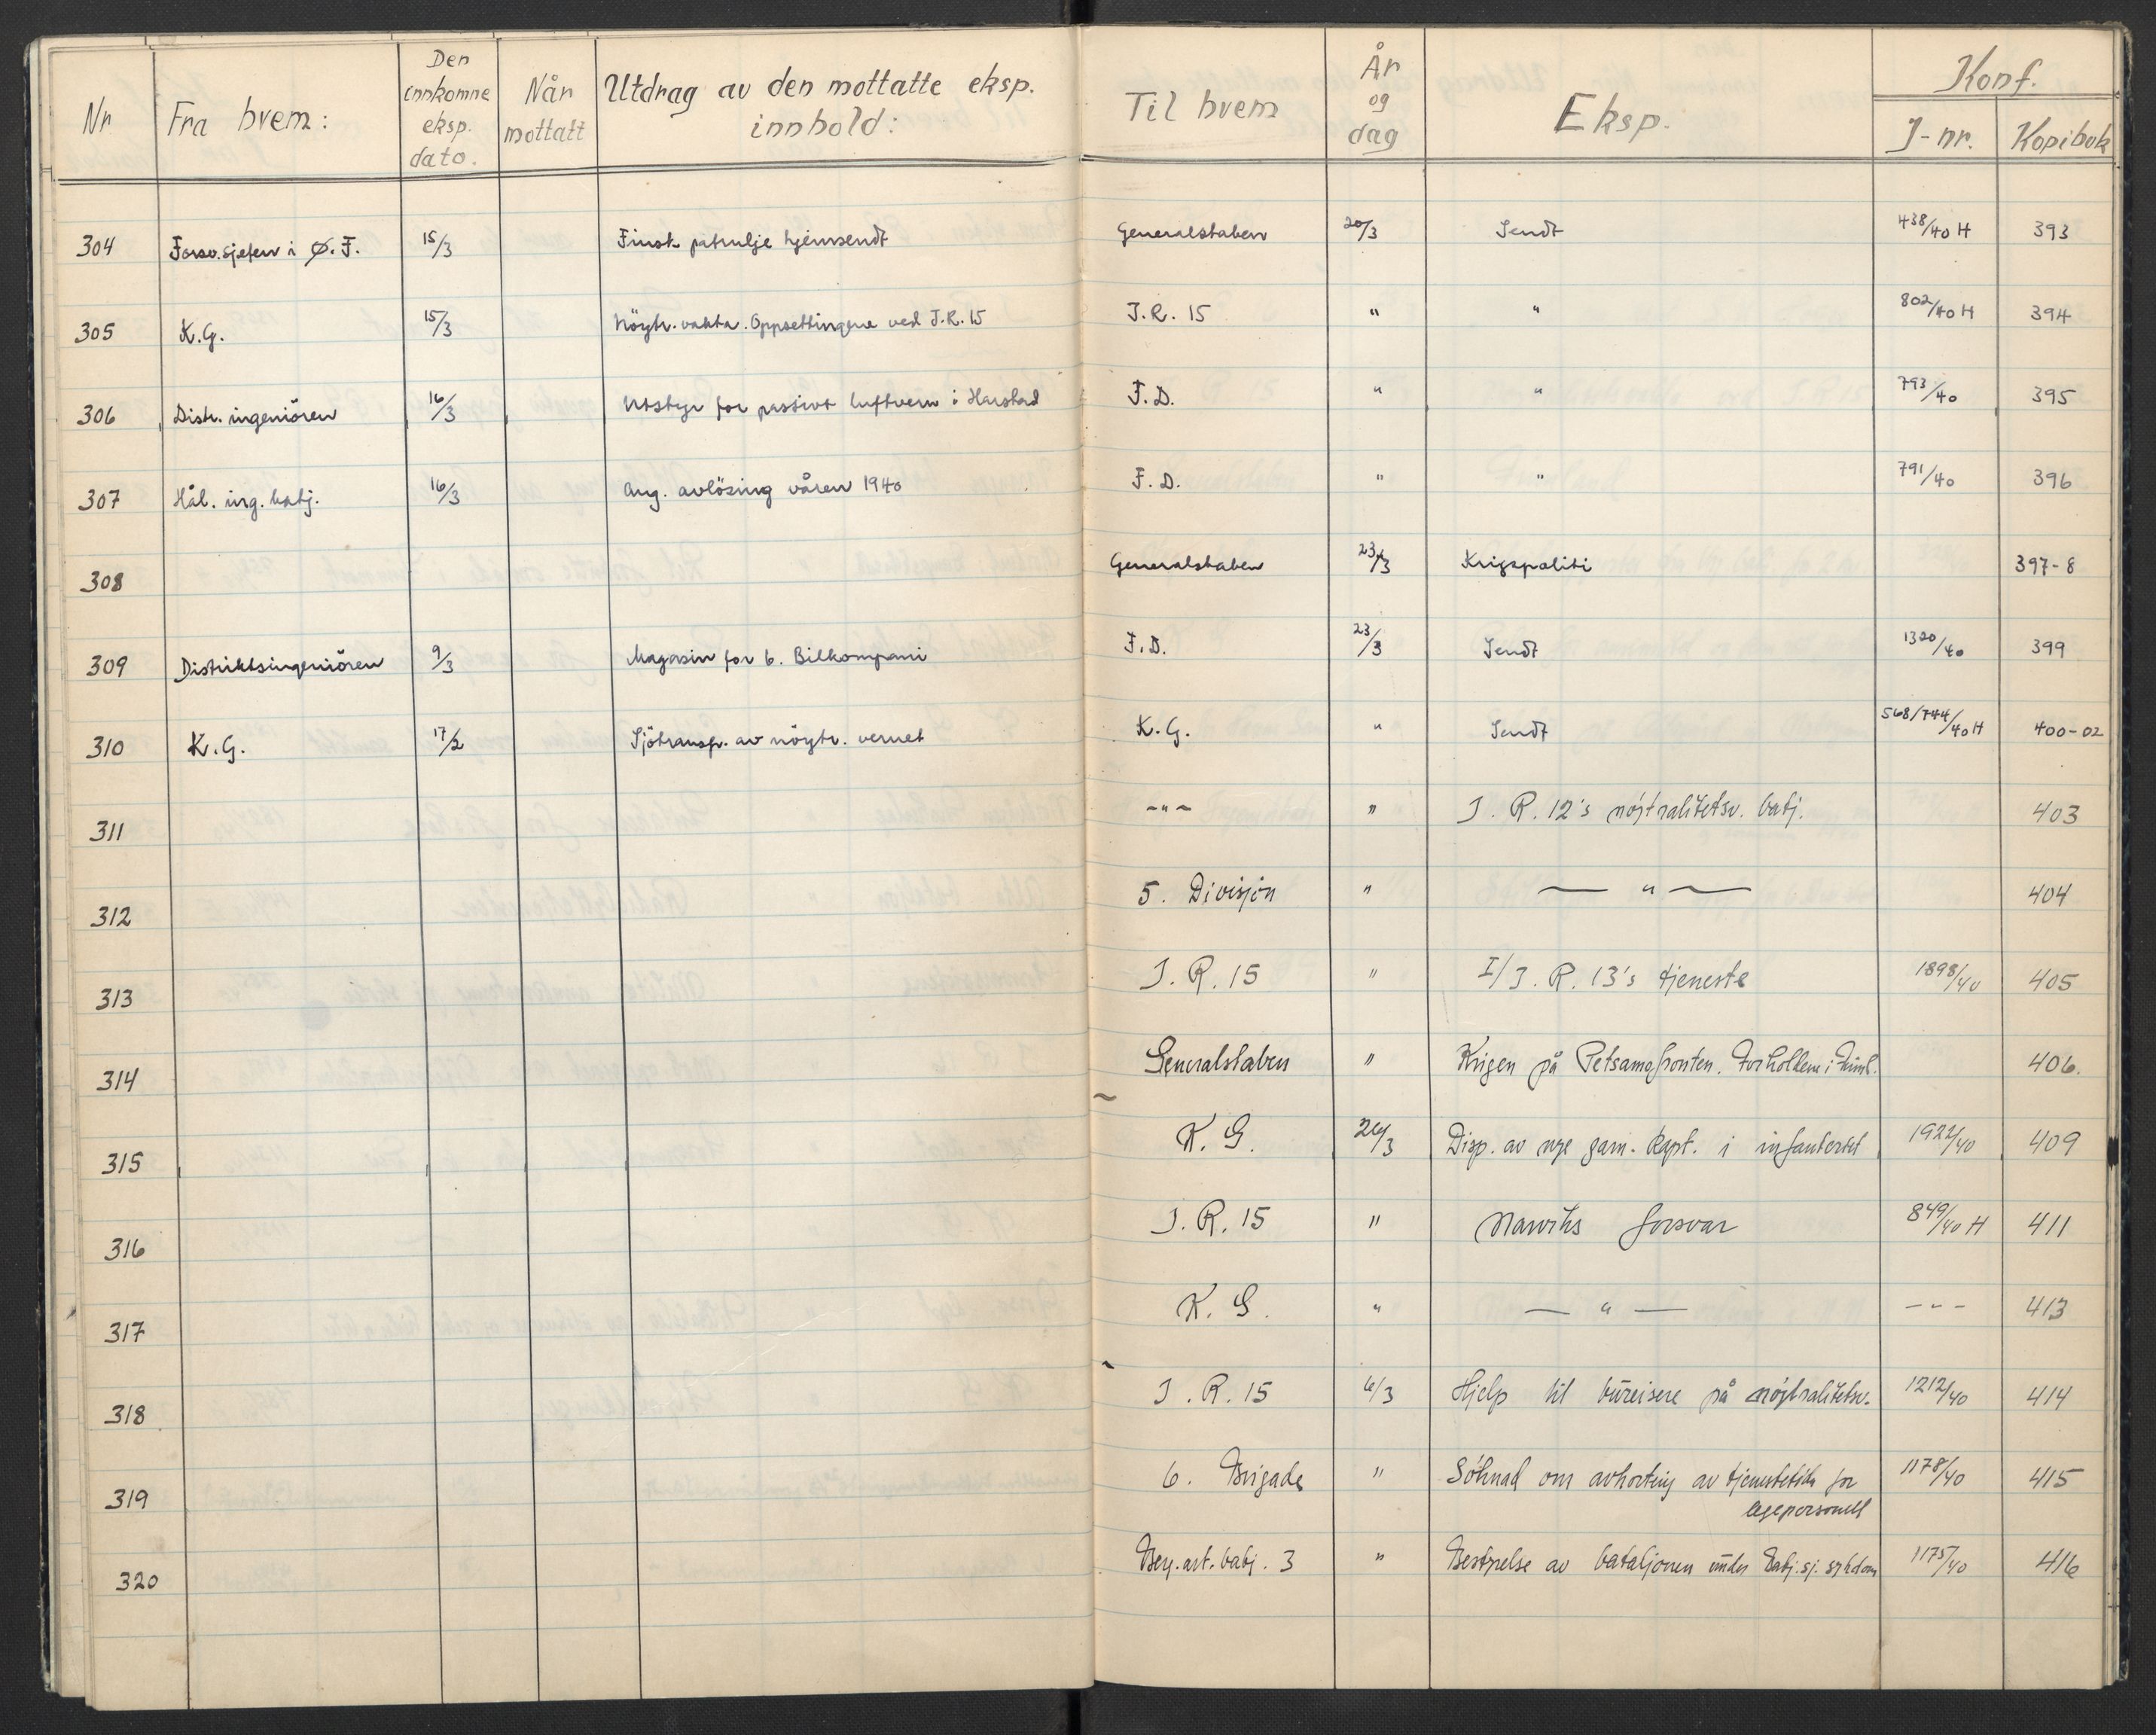 Nr Fra hvem: Den innkomne eksp. dato. Når mottatt Utdrag av den mottatte eksp. innhold: Til hvem År og dag Eksp. Konf. J-nr. Kopibok
304 Forsv.sjefen i Ø.F. 15/3 Finsk patrulje hjemsendt Generalstaben 20/3 Sendt 438/40 H 393
305 K.G. 15/3 Nöytr.vakta. Oppsettingene ved I.R. 15 I.R. 15 " " 802/40 H 394
306 Distr. ingeniören 16/3 Utstyr for passivt luftvern i Harstad F.D. " " 793/40 395
307 Hål. ing. batj. 16/3 Ang. avlösing våren 1940 F.D. " " 791/40 396
308 Generalstaben 23/3 Krigspoliti 397-8
309 Distriktsingeniören 9/3 Magasin for 6. Bilkompani F.D. 23/3 Sendt 1320/40 399
310 K.G. 17/2 Sjötransp. av nöytr. vernet K.G. " Sendt 568/744/40 H 400-02
311 -"- " I.R. 12's nøytralitetsv. batj. 403
312 5. Divisjon " — " — 404
313 I.R. 15 " I/I.R. 13's tjeneste 1898/40 405
314 Generalstaben " Krigen på Petsamofronten. Forholdene i Finnl. 406.
315 K.G. 26/3 Disp. av nye garn. kapt. i infanteriet 1922/40 409
316 I.R. 15 " Narviks forsvar 849/40 H 411
317 K.G. " — " — - " - 413
318 I.R. 15 6/3 Hjelp til bureisere på nøytralitetsv. 1212/40 414
319 6. Brigade " Søknad om avkorting av tjenestetida for 1178/40 415
legepersonell
320 Berg.art.batj. 3 " Bestyrelse av bataljonen under Batj.sj. sykdom 1175/40 416